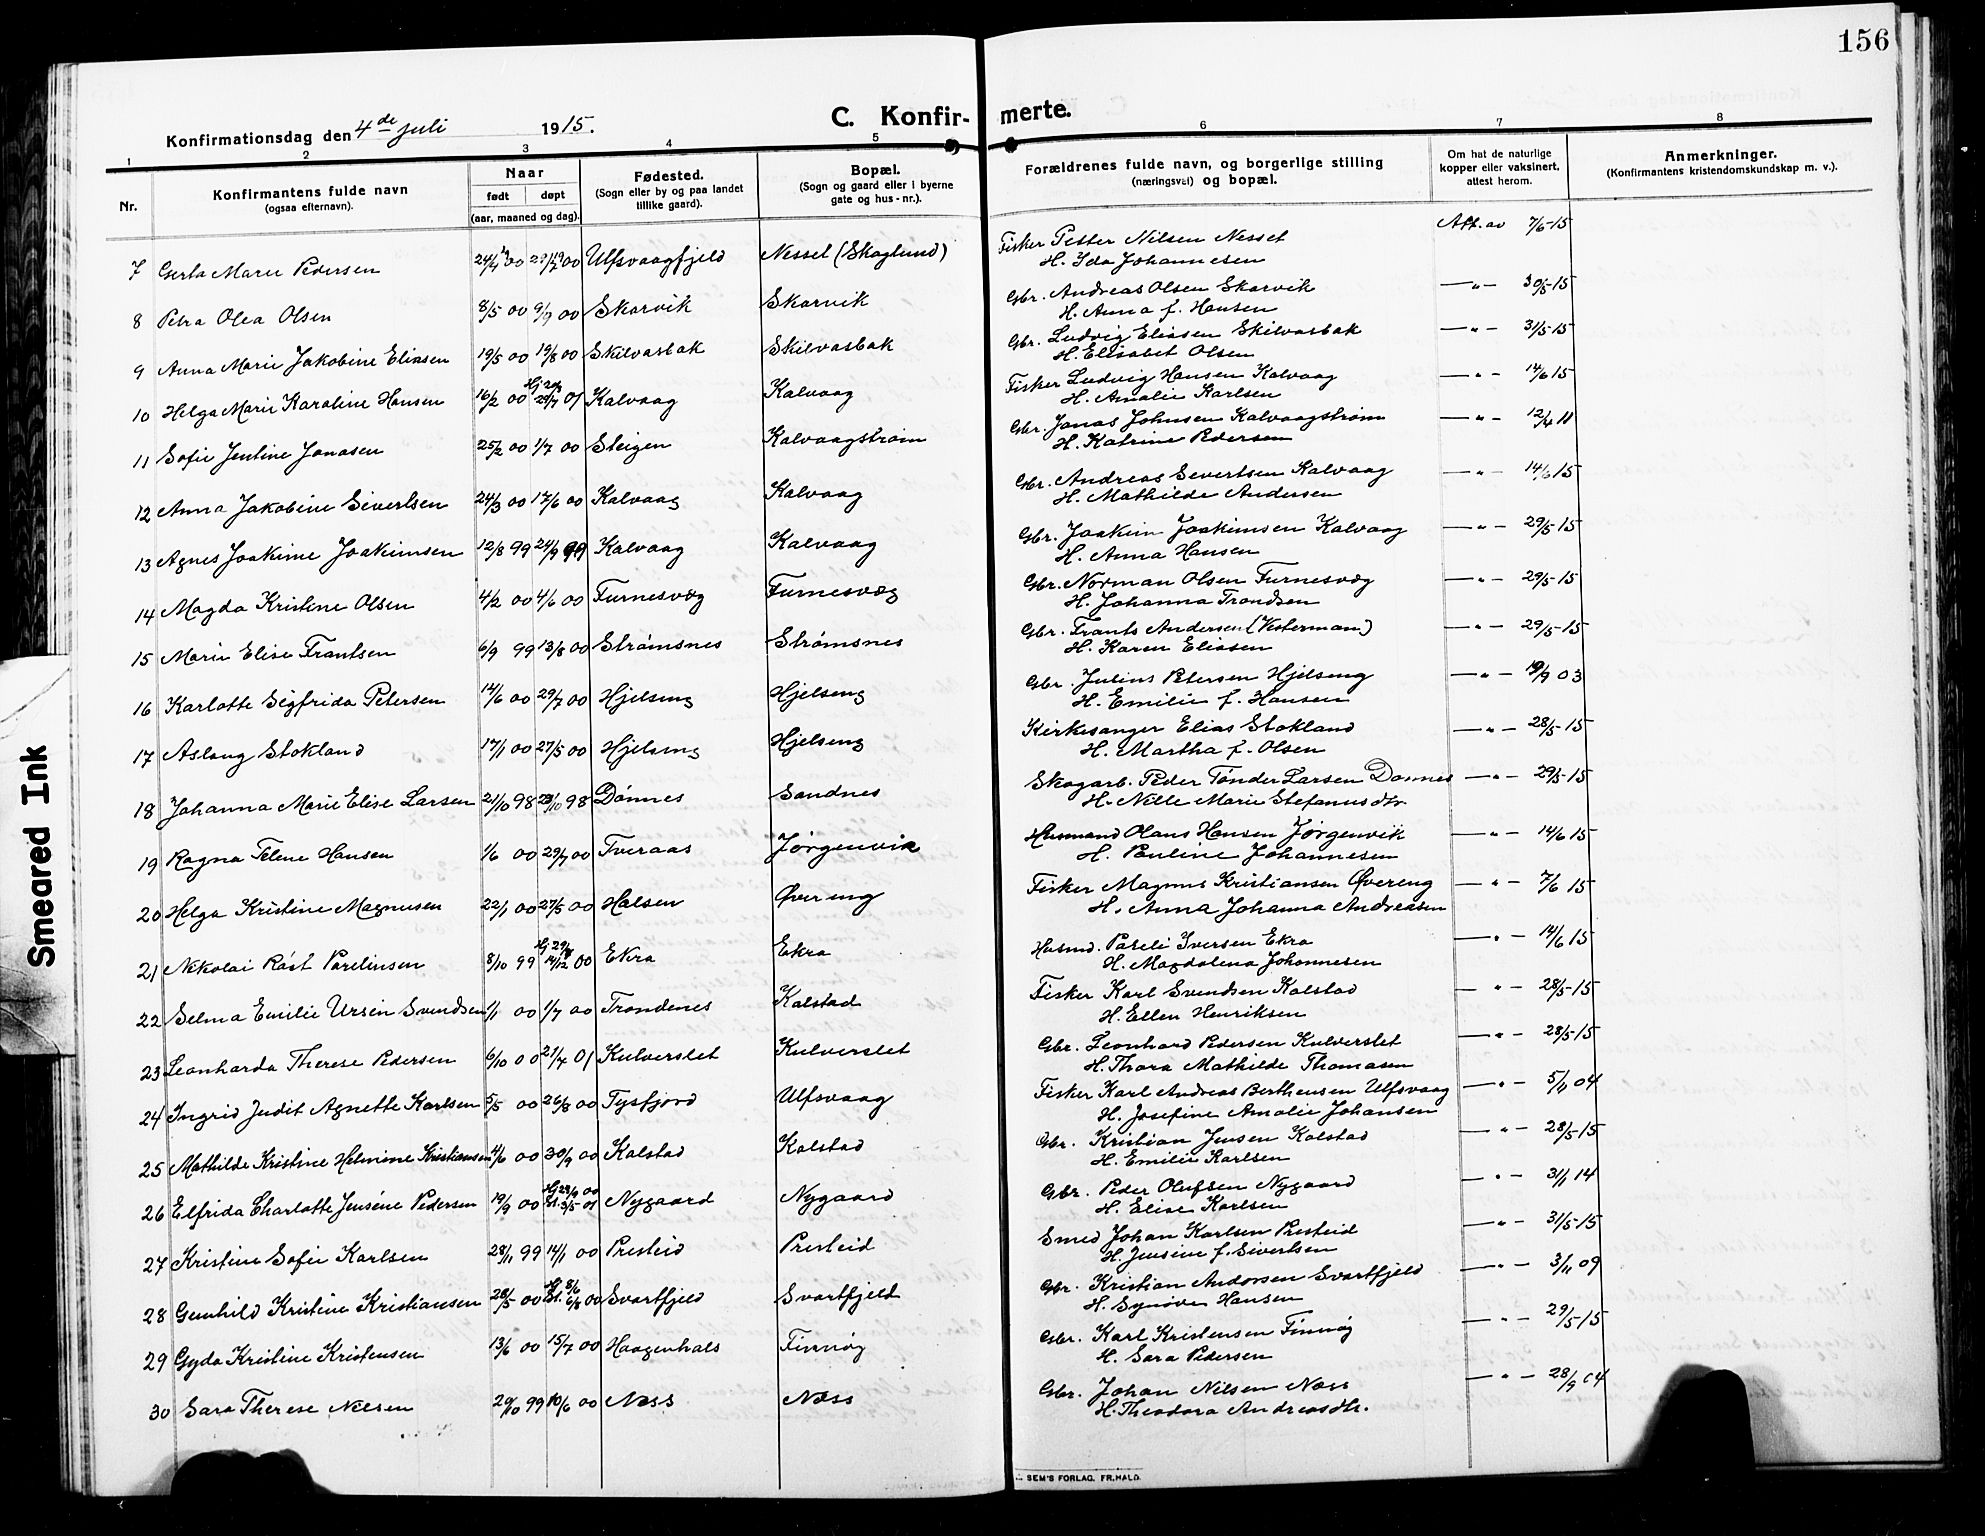 156
Konfirmationsdag den 4de juli 1915.
C. Konfirmerte.
1 2 3 4 5 6 7 8
Nr.
Konfirmantens fulde navn
(ogsaa efternavn).
Naar
født døpt
(aar, maaned og dag).
Fødested.
(Sogn eller by og paa landet
tillike gaard).
Bopæl.
(Sogn og gaard eller i byerne
gate og hus-nr.).
Forældrenes fulde navn, og borgerlige stilling
(næringsvei) og bopæl.
Om hat de naturlige
kopper eller vaksinert,
attest herom.
Anmerkninger.
(Konfirmantens kristendomskundskap m. v.).
7 Gerta Marie Pedersen Ulfsvaagfjeld Nesset (Skoglund) Fisker Petter Nilsen Nesset Att. av 7/6-15
H. Ida Johannesen
8 Petra Olea Olsen 8/5 00 9/9 00 Skarvik Skarvik Gbr. Andreas Olsen Skarvik —"— 30/5-15
H. Anna f. Hansen
9 Anna Marie Jakobine Eliasen 19/5 00 19/8 00 Skilvasbak Skilvasbak Gbr. Ludvig Eliasen Skilvasbak —"— 31/5-15
H. Elisabet Olsen
10 Helga Marie Karoline Hansen 16/2 00 29/7 01 Kalvaag Kalvaag Fisker Ludvig Hansen Kalvaag —"— 14/6 15
H. Amalie Karlsen
11 Sofie Jentine Jonasen 25/2 00 1/7 00 Steigen Kalvaagstrøm Gbr. Jonas Johnsen Kalvaagstrøm —"— 12/4 11
H. Katrine Pedersen
12 Anna Jakobine Sivertsen 24/3 00 17/6 00 Kalvaag Kalvaag Gbr. Andreas Severtsen Kalvaag —"— 14/6 15
H. Mathilde Andersen
13 Agnes Joakime Joakimsen 12/8 99 24/9 99 Kalvaag Kalvaag Gbr. Joakim Joakimsen Kalvaag —"— 29/5-15
H. Anna Hansen
14 Magda Kristine Olsen 4/2 00 4/6 00 Furnesvæg Furnesvæg Gbr. Norman Olsen Furnesvæg —"— 29/5-15
H. Johanna Trondsen
15 Marie Elise Frantsen 6/9 99 13/8 00 Strømsnes Strømsnes Gbr. Frants Andersen (Vesterman) —"— 29/5-15
H. Karen Eliasen
16 Karlotte Sigfrida Petersen 14/6 00 29/7 00 Hjelseng Hjelseng Gbr. Julius Petersen Hjelseng —"— 19/9 03
H. Emilie f. Hansen
17 Aslaug Stokland 17/1 00 27/5 00 Hjelseng Hjelseng Kirkesanger Elias Stokland —"— 28/5-15
H. Martha f. Olsen
18 Johanna Marie Elise Larsen 21/10 98 98 Dønnes Sandnes Skogarb. Peder Tønder Larsen Dønnes —"— 29/5-15
H. Nille Marie Stefanusdtr.
19 Ragna Telene Hansen 1/6 00 29/7 00 Tveraas Jørgenvik Husmand Olaus Hansen Jørgenvik —"— 14/6 15
H. Pauline Johannesen
20 Helga Kristine Magnusen 22/1 00 27/5 00 Halsen Øvereng Fisker Magnus Kristiansen Øvereng —"— 7/6 15
H. Anna Johanna Andreasen
21 Nikolai Røst Parelinsen 8/10 99 14/12 00 Ekra Ekra Husmd. Pareli Iversen Ekra —"— 14/6 15
H. Magdalena Johannesen
22 Selma Emilie Ursin Svendsen 1/1 00 1/7 00 Trondenes Kalstad Fisker Karl Svendsen Kalstad "— 28/5-15
H. Ellen Henriksen
23 Leonharda Therese Pedersen 6/10 00 21/7 01 Kulverslet Kulverslet Gbr. Leonhard Pedersen Kulverslet "— 28/5-15
H. Thora Mathilde Thomasen
24 Ingrid Judit Agnette Karlsen 5/5 00 26/8 00 Tysfjord Ulfsvaag Fisker Karl Andreas Berthensen Ulfsvaag —"— 5/11 04
H. Josefine Amalie Johansen
25 Mathilde Kristine Helmine Kristiansen 4/6 00 30/9 00 Kalstad Kalstad Gbr. Kristian Jensen Kalstad —"— 28/5-15
H. Emilie Karlsen
26 Elfrida Charlotte Jensine Pedersen 19/9 00 Hj 29/9 00 St. 3/5-01 Nygaard Nygaard Gbr. Peder Olufsen Nygaard "— 3/11 14
H. Elise Karlsen
27 Kristine Sofie Karlsen 28/11 99 14/1 00 Presteid Presteid Smed Johan Karlsen Presteid —"— 31/5-15
H. Jensine f. Sivertsen
28 Gunhild Kristine Kristiansen 28/5 00 Hj 8/6 St. 6/8 00 Svartfjeld Svartfjeld Gbr. Kristian Andorsen Svartfjeld —"— 3/11 09
H. Synøve Hansen
29 Gyda Kristine Kristensen 13/6 00 15/7 00 Haagenhals Finnøy Gbr. Karl Kristensen Finnøy —"— 29/5-15
H. Sara Pedersen
30 Sara Therese Nilsen 29/10 99 10/6 00 Næss Næss Gbr. Johan Nilsen Næss —"— 28/9 04
H. Theodora Andreasdtr.
SEM'S FORLAG, FR.HALD.
Smeared Ink